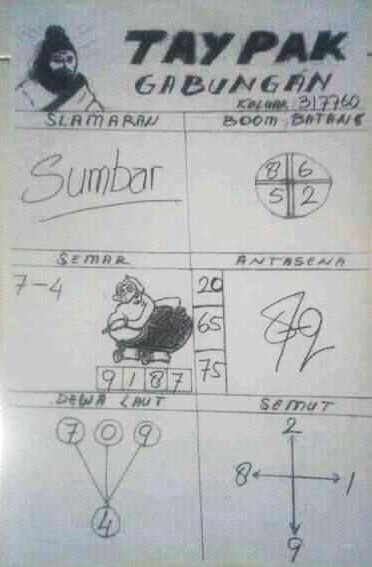 TAYPAK
GABUNGAN
KELUAR 317760
SLAMARAN
BOOM BATANG
Sumbar
8 6
5 2
SEMAR
ANTASENA
7-4
20
65
75
9 1 8 7
82
DEWA LAUT
SEMUT
7 0 9
4
2
8 1
9